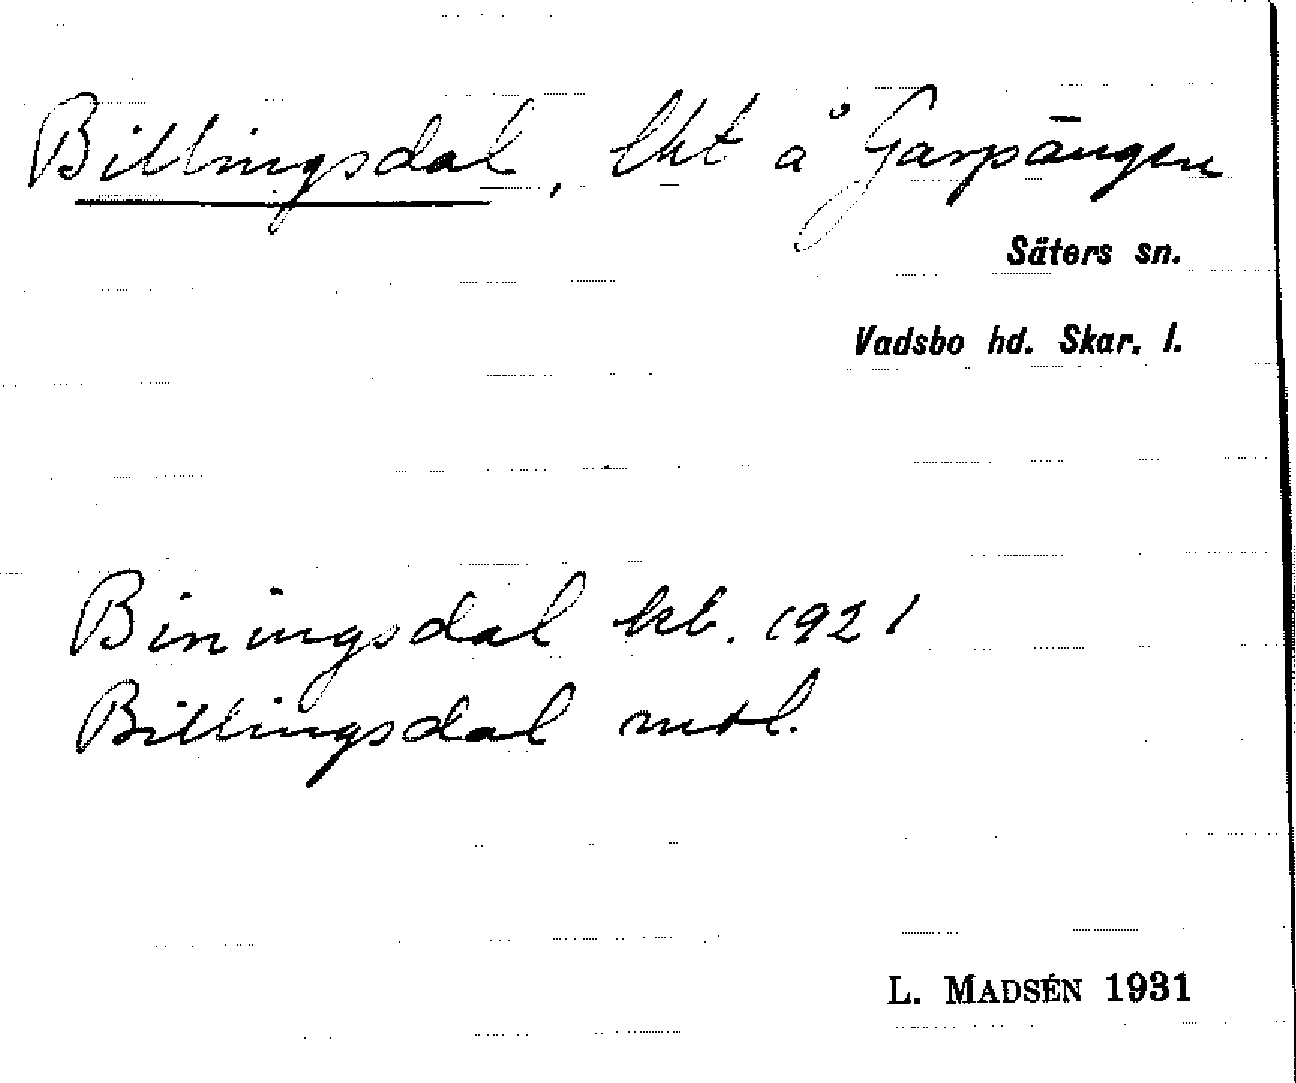 Billingsdal, lht å Garpängen
Säters sn.
Vadsbo hd. Skar. l.
Biningsdal kb. 1921
Billingsdal mtl.
L. MADSÉN 1931